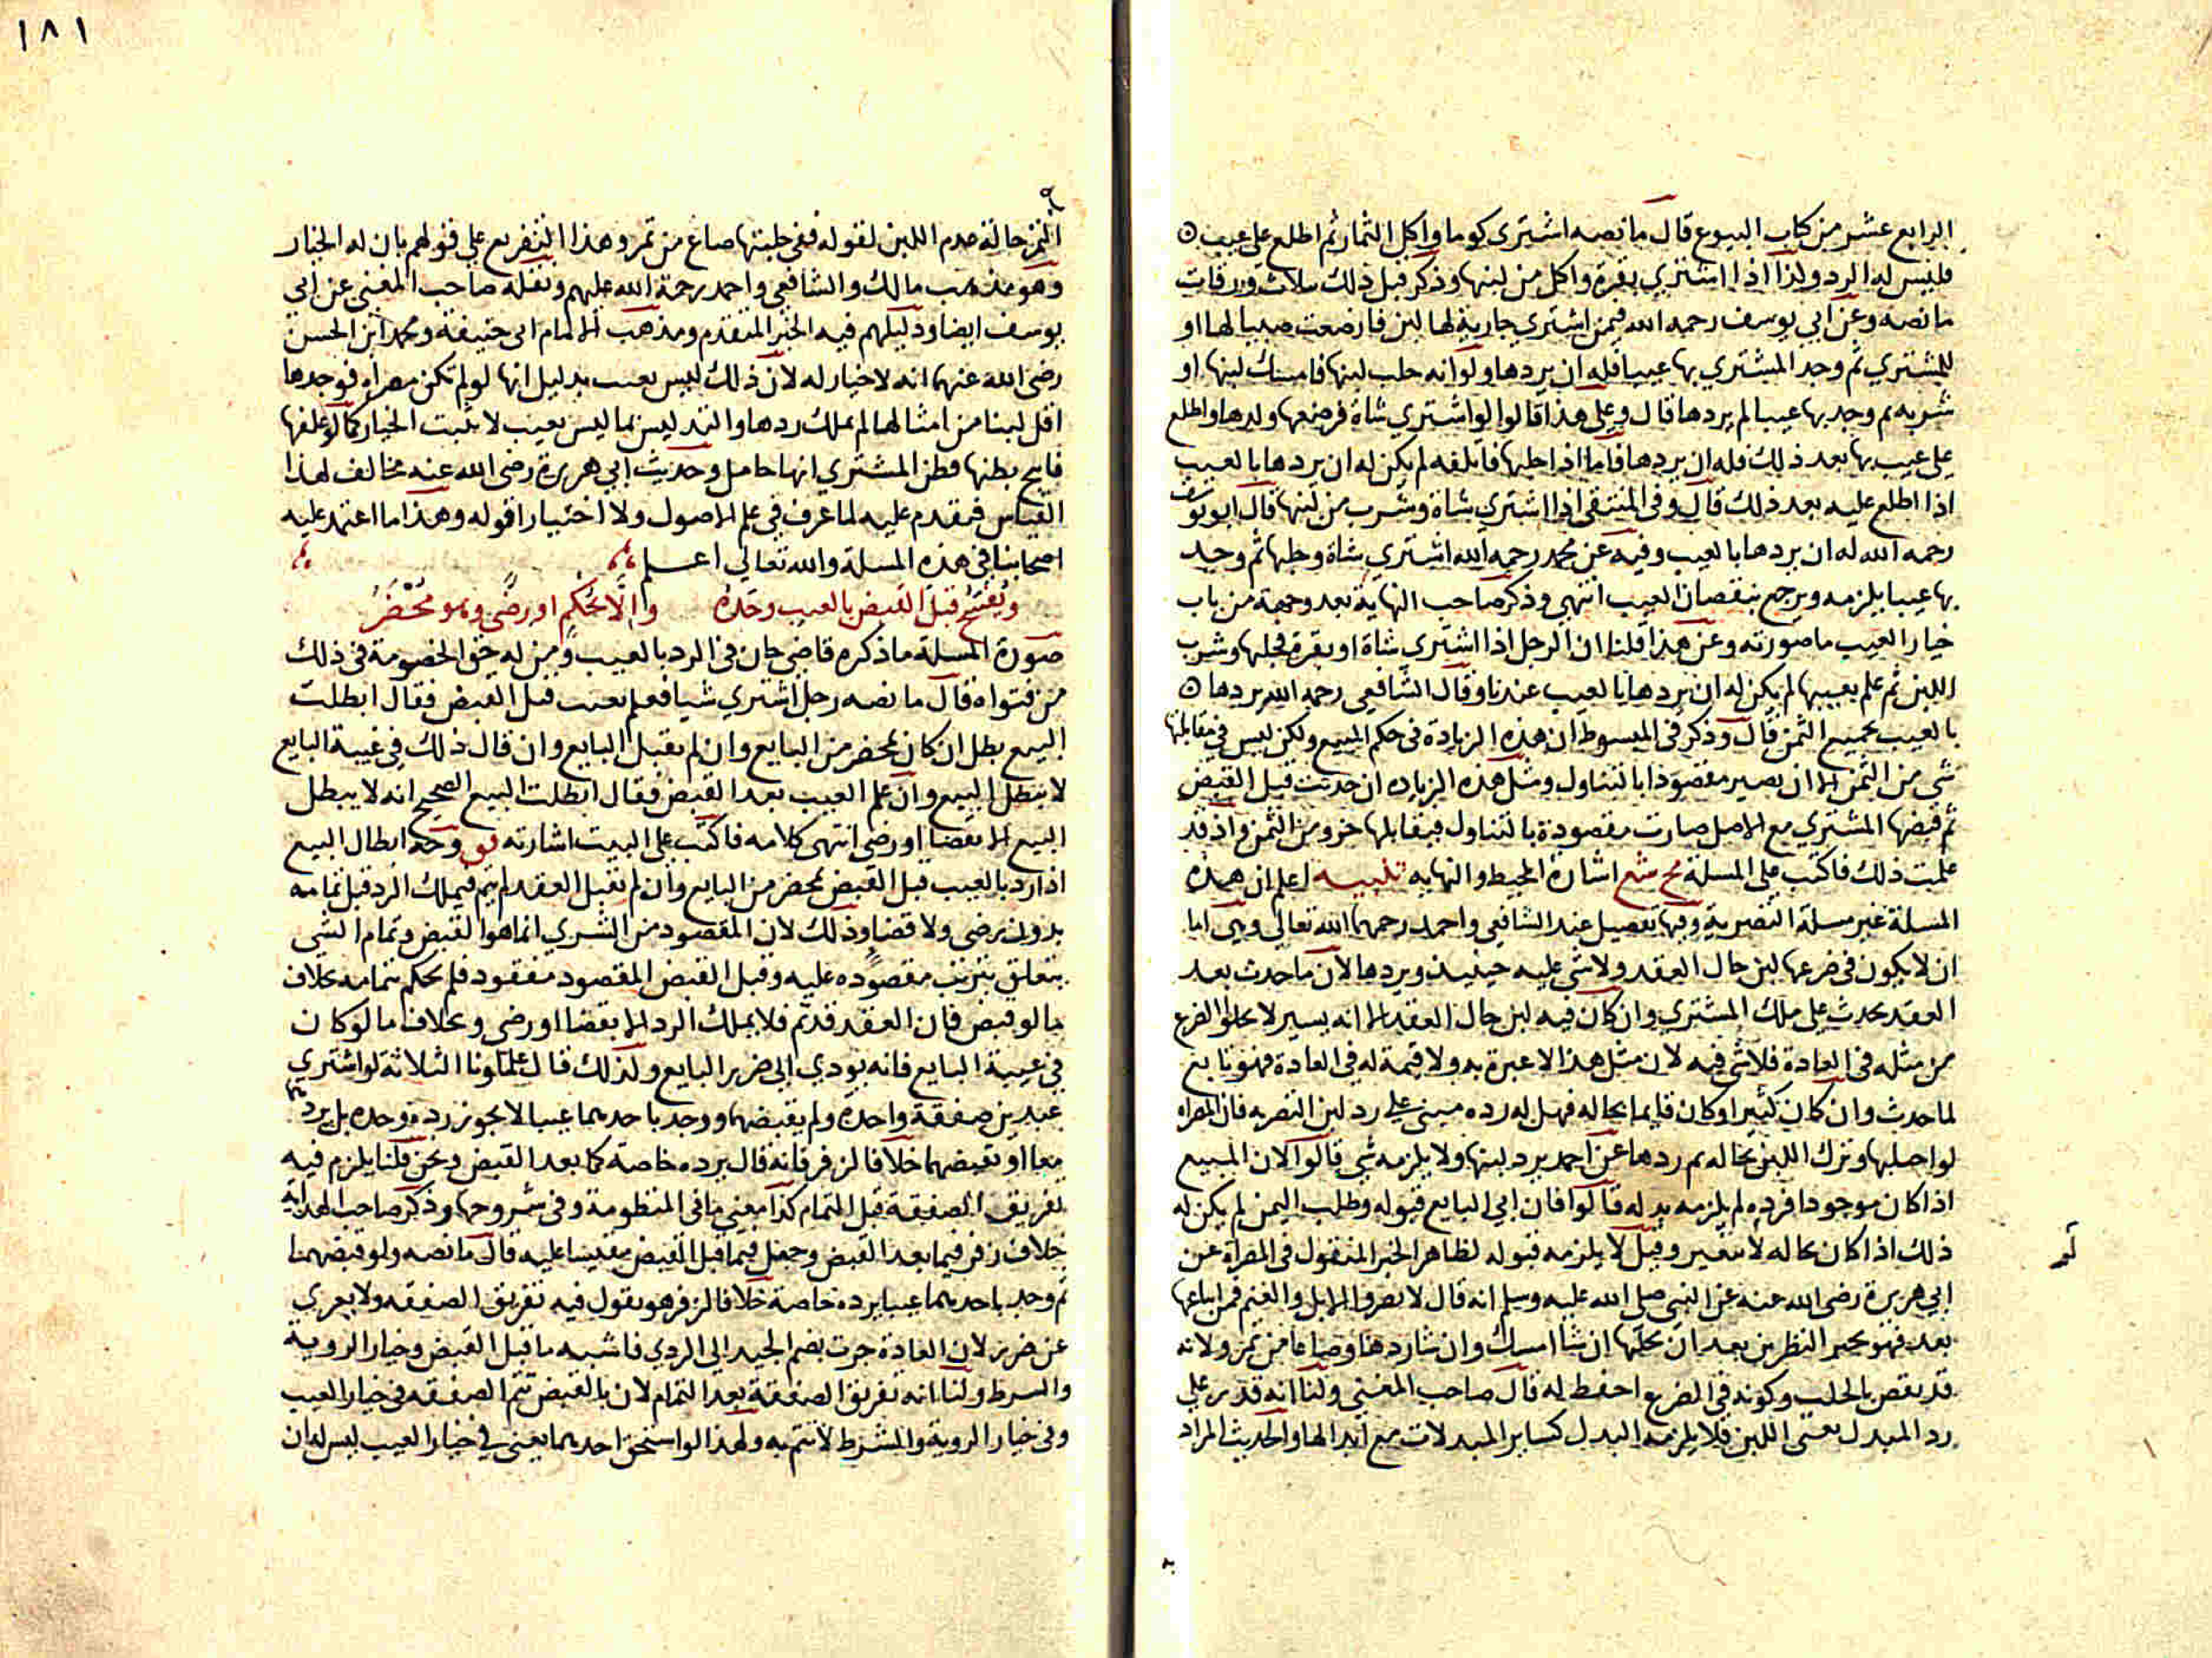 الرابع عشر من كتاب البيوع قال ما نصه اشترى كوما واكل الثمار ثم اطلع على عيب
فليس له الرد ولذا اذا اشترى بقرة واكل من لبنها وذكر قبل ذلك بثلاث ورقات
ما نصه وعن ابي يوسف رحمه الله فيمن اشترى جارية لها لبن فارضعت صبيا لها او
للمشتري ثم وجد المشتري بها عيبا فله ان يردها ولو انه حلب لبنها فامسك لبنها او
شربه ثم وجد بها عيبا لم يردها قال وعلى هذا قالوا لو اشترى شاة فرضعها ولدها واطلع
على عيب بها بعد ذلك فله ان يردها فاما اذا حلبها فاتلفه لم يكن له ان يردها بالعيب
اذا اطلع عليه بعد ذلك قال وفي المنتقى اذا اشترى شاة وشرب من لبنها قال ابو يوسف
رحمه الله له ان يردها بالعيب وفيه عن محمد رحمه الله اشترى شاة وحلبها ثم وجد
بها عيبا يلزمه ويرجع بنقصان العيب انتهى وذكر صاحب النهاية بعد وجهة من باب
خيار العيب ما صورته وعن هذا قلنا ان الرجل اذا اشترى شاة او بقرة فحلبها وشرب
اللبن ثم علم بعيبها لم يكن له ان يردها بالعيب عندنا وقال الشافعي رحمه الله يردها
بالعيب بجميع الثمن قال وذكر في المبسوط ان هذه الزيادة في حكم المبيع ولكن ليس في مقابلتها
شي من الثمن الا ان يصير مقصودا بالتناول ومثل هذه الزياده ان حدثت قبل القبض
ثم قبضها المشتري مع الاصل صارت مقصودة بالتناول فيقابلها جزو من الثمن واذ قد
علمت ذلك فاكتب على المسلة مح شع اشارة المحيط والنهايه تنبيه اعلم ان هذه
المسلة غير مسلة التصرية وفيها تفصيل عند الشافعي واحمد رحمهما الله تعالى وهي اما
ان لا يكون في ضرعها لبن حال العقد ولا شي عليه حينيذ ويردها لان ما حدث بعد
العقد يحدث على ملك المشتري وان كان فيه لبن حال العقد الا انه يسير لا يخلو الضرع
من مثله في العادة فلا شي فيه لان مثل هذا لا عبرة به ولا قيمة له في العادة فهو تابع
لما حدث وان كان كثيرا وكان قايما بحاله فهل له رده مبني على رد لبن التصريه فان المصراه
لو احلبها وترك اللبن بحاله ثم ردها عن احمد يرد لبنها ولا يلزمه شي قالوا لان المبيع
اذا كان موجودا فرده لم يلزمه بدله قالوا فان ابى البايع قبوله وطلب الثمن لم يكن له
ذلك اذا كان بحاله لا يتغير وقيل لا يلزمه قبوله لظاهر الخبر المنقول في المصراة عن
ابي هريرة رضي الله عنه عن النبي صلى الله عليه وسلم انه قال لا تصروا الابل والغنم فمن ابتاعها
بعد فهو بخير النظرين بعد ان يحلبها ان شا امسك وان شا ردها وصاعا من تمر ولانه
قد نقص بالحلب وكونه في الضرع احفظ له قال صاحب المغني ولنا انه قدر على
رد المبدل يعني اللبن فلا يلزمه البدل كساير المبدلات مع ابدالها والحديث المراد
١٨١
التمر حالة عدم اللبن لقوله ففي حلبتها صاع من تمر وهذا التفريع على قولهم بان له الخيار
وهو مذهب مالك والشافعي واحمد رحمة الله عليهم ونقله صاحب المغني عن ابي
يوسف ايضا ودليلهم فيه الخبر المتقدم ومذهب الامام ابي حنيفة ومحمد ابن الحسن
رضي الله عنهما انه لا خيار له لان ذلك ليس بعيب بدليل انها لو لم تكن مصراه فوجدها
اقل لبنا من امثالها لم يملك ردها والتدليس بما ليس بعيب لا يثبت الخيار كما لو علفها
فانتفخ بطنها فظن المشتري انها حامل وحديث ابي هريرة رضي الله عنه مخالف لهذا
القياس فيقدم عليه لما عرف في علم الاصول ولا اختيارا قوله وهذا ما اعتمد عليه
اصحابنا في هذه المسلة والله تعالى اعلم
ويُفسخ قبل القبض بالعيب وحدَهُ والّا بحُكمٍ او رضًى وهو مُحْضَرُ
صورة المسلة ما ذكره قاضي خان في الرد بالعيب وممن له حق الخصومة في ذلك
من فتواه قال ما نصه رجل اشترى شيا فعلم بعيب قبل القبض فقال ابطلت
البيع بطل ان كان بمحضر من البايع وان لم يقبل البايع وان قال ذلك في غيبة البايع
لا يبطل البيع وان علم العيب بعد القبض فقال ابطلت البيع الصحيح انه لا يبطل
البيع الا بقضا او رضى انتهى كلامه فاكتب على البيت اشارته وجه ابطال البيع
اذا رد بالعيب قبل القبض بمحضر من البايع وان لم يقبل العقد لم يتم فيملك الرد قبل تمامه
بدون رضى ولا قضا وذلك لان المقصود من الشري انما هو القبض وتمام الشي
يتعلق بترتب مقصوده عليه وقبل القبض المقصود مفقود فلم يحكم بتمامه بخلاف
ما لو قبض فان العقد قد تم فلا يملك الرد الا بقضا او رضى وبخلاف ما لو كان
في غيبة البايع فانه يودي الى ضرر البايع ولذلك قال علماونا الثلاثة لو اشترى
عبدين صفقة واحدة ولم يقبضهما ووجد باحدهما عيبا لا يجوز رده وحده بل يردهما
معا او يقبضهما خلافا لزفر فانه قال يرده خاصة كما بعد القبض ونحن قلنا يلزم فيه
تفريق الصفقة قبل التمام كذا معنى ما في المنظومة وفي شروحها وذكر صاحب الهداية
خلاف زفر فيما بعد القبض وجعل فيما قبل القبض مقيسا عليه قال ما نصه ولو قبضهما
ثم وجد باحدهما عيبا يرده خاصة خلافا لزفر هو يقول فيه تفريق الصفقه ولا يعرى
عن ضرر لان العادة جرت بضم الجيد الى الردي فاشبه ما قبل القبض وخيار الروية
والشرط ولنا انه تفريق الصفقة بعد التمام لان بالقبض تتم الصفقه في خيار العيب
وفي خيار الروية والشرط لا تتم به ولهذا لو استحق احدهما يعني في خيار العيب ليس له ان